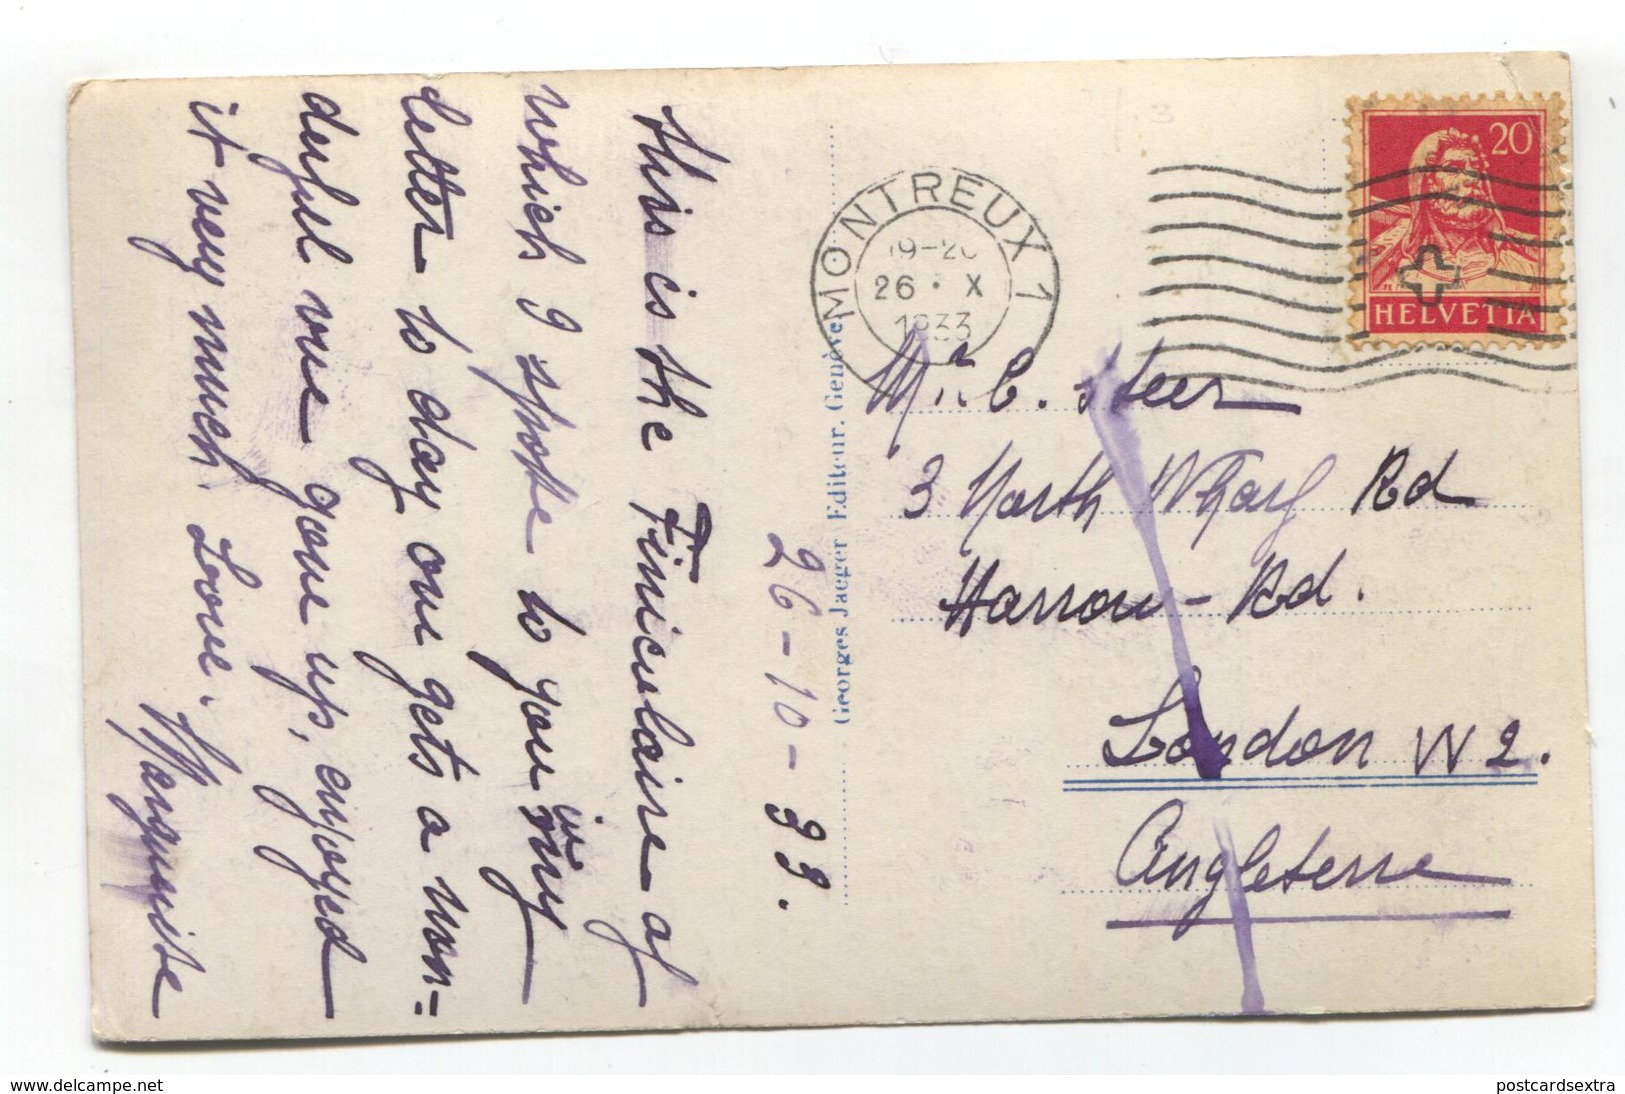 This is the Finiculaire of
which I spoke to you in my
letter to day one gets a won=
derful vue gone up, enjoyed
it very much. Love.
Marguerite
26-10-33.
Georges Jaeger Editeur. Genève
MONTREUX 1
26 · X
1933
20
HELVETIA
C. Steer
3 North Wharf Rd
Harrow - Rd.
London W 2.
Angleterre
www.delcampe.net
postcardsextra